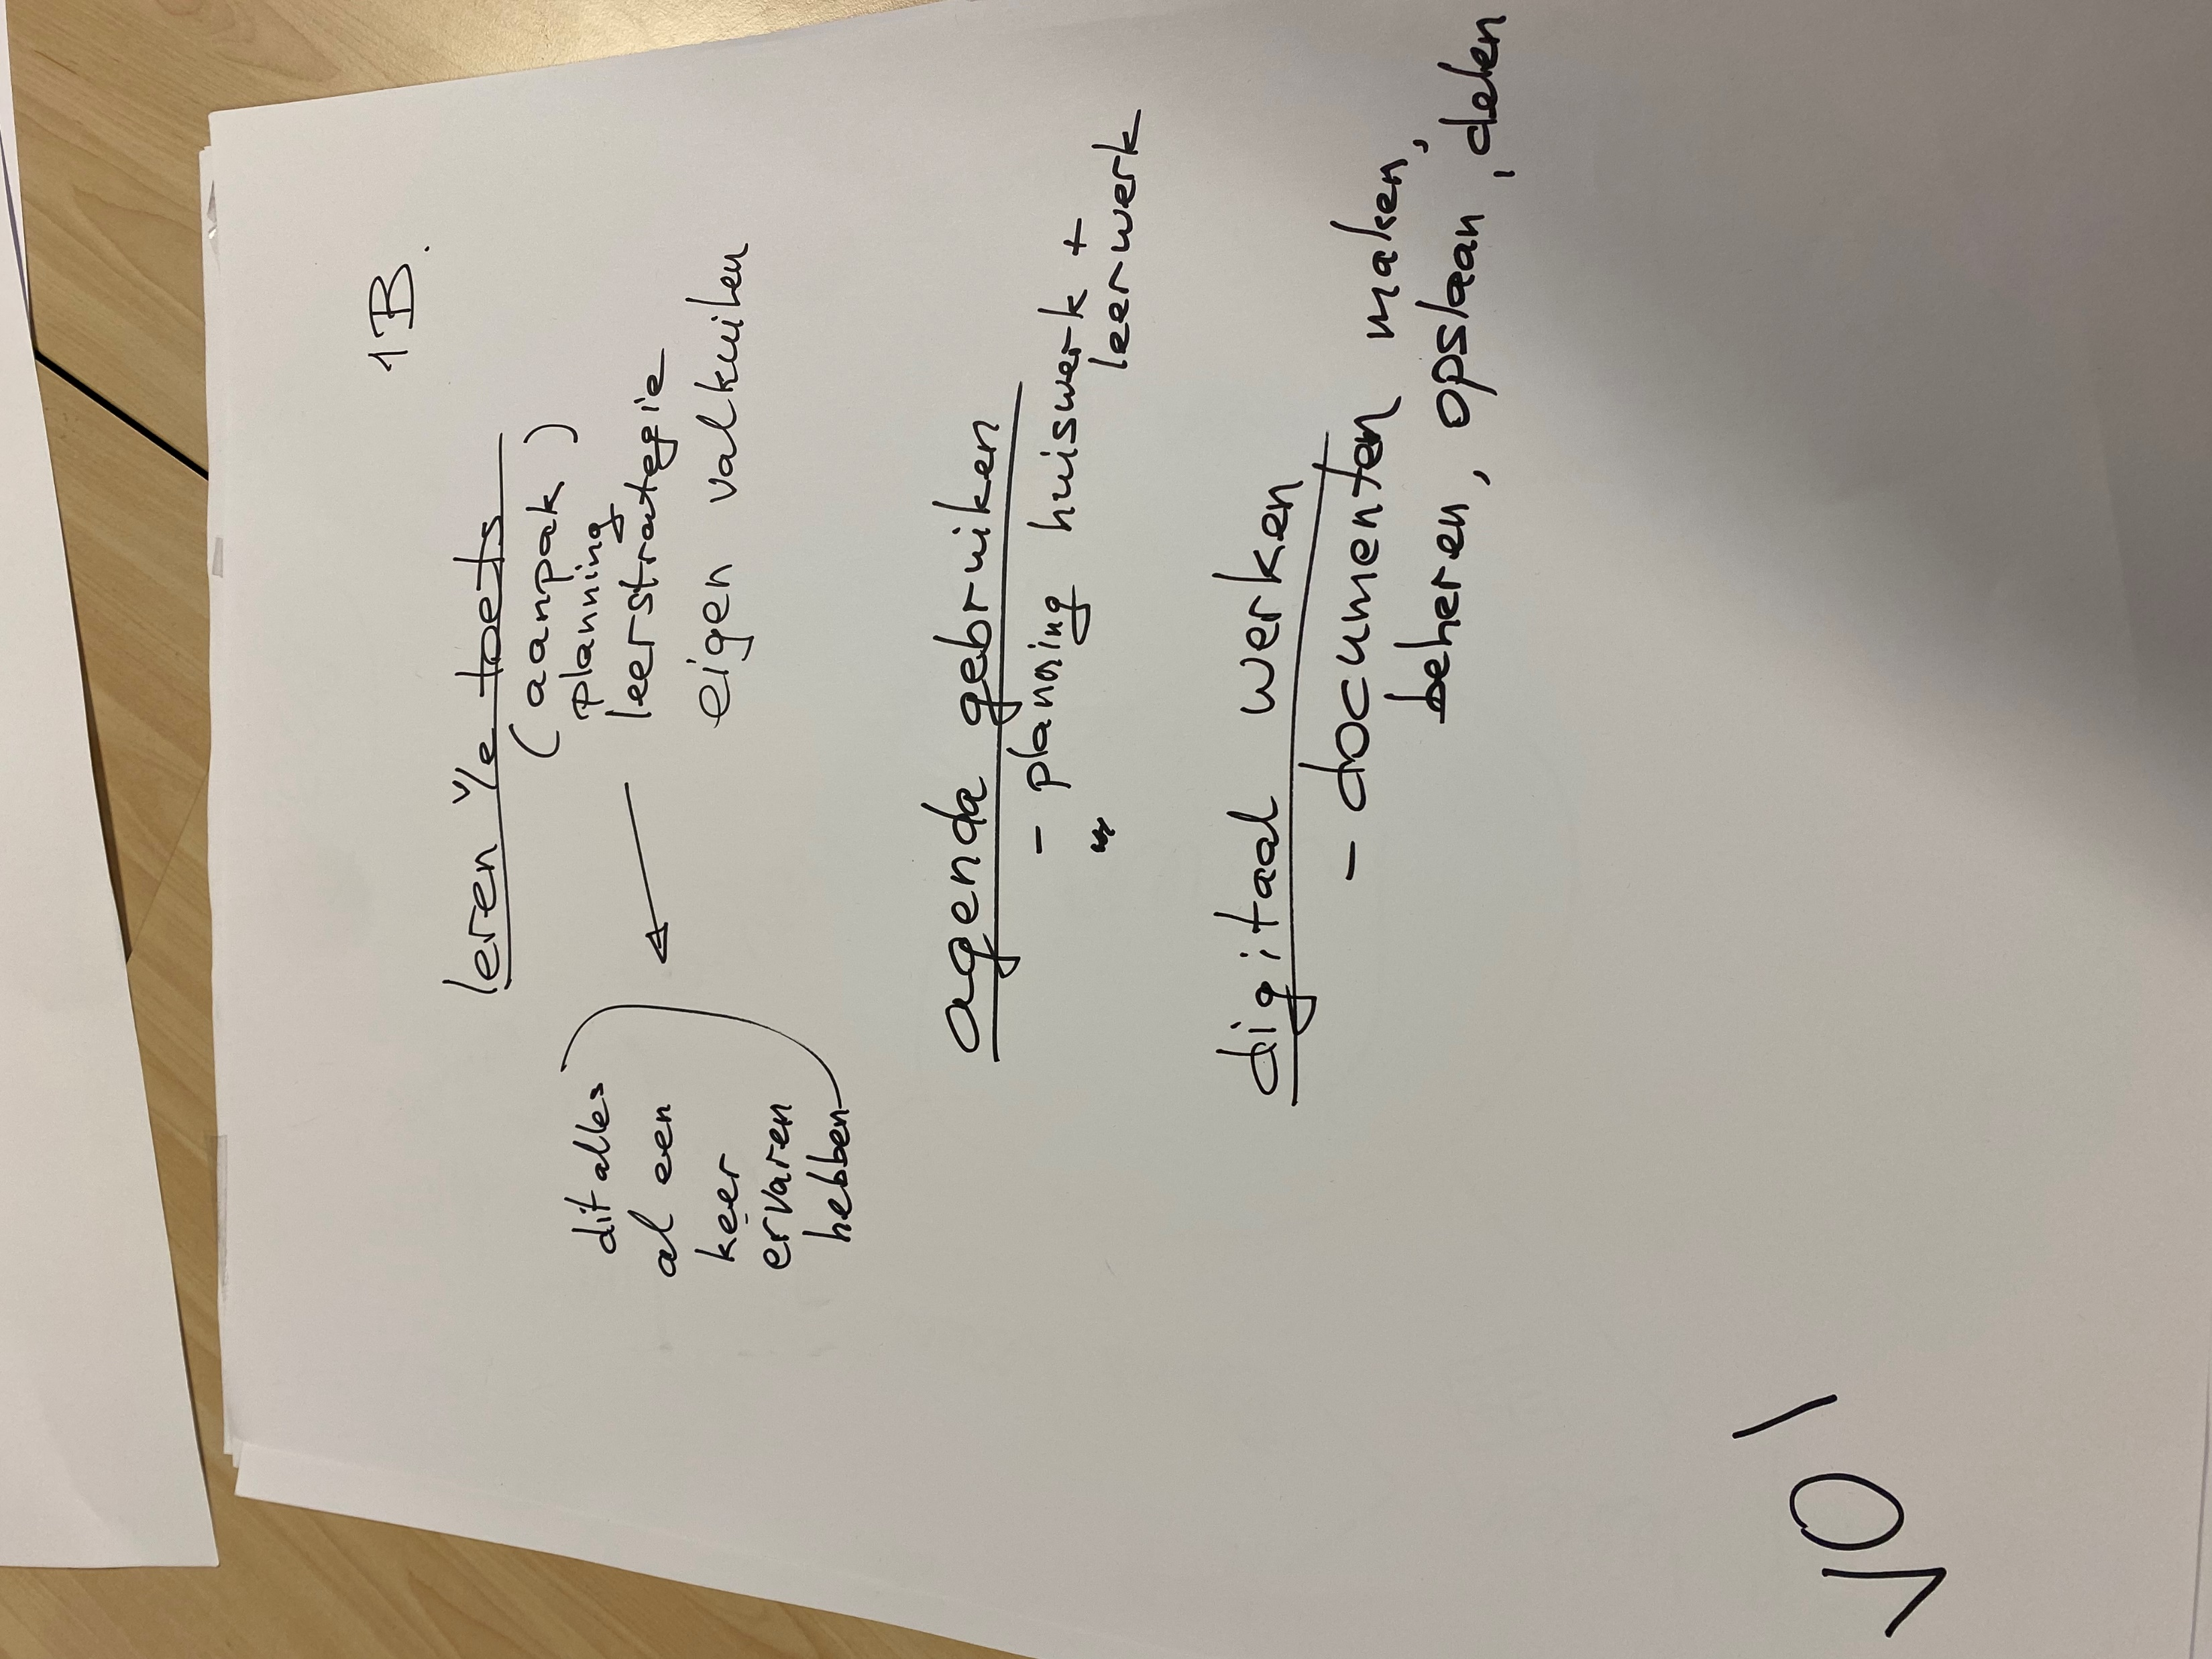 1B.
leren v/e toets
(aanpak)
planning
leerstrategie
eigen valkuilen
dit alles
al een
keer
ervaren
hebben
agenda gebruiken
- planning huiswerk +
leerwerk
digitaal werken
- documenten maken,
beheren, opslaan, delen
101